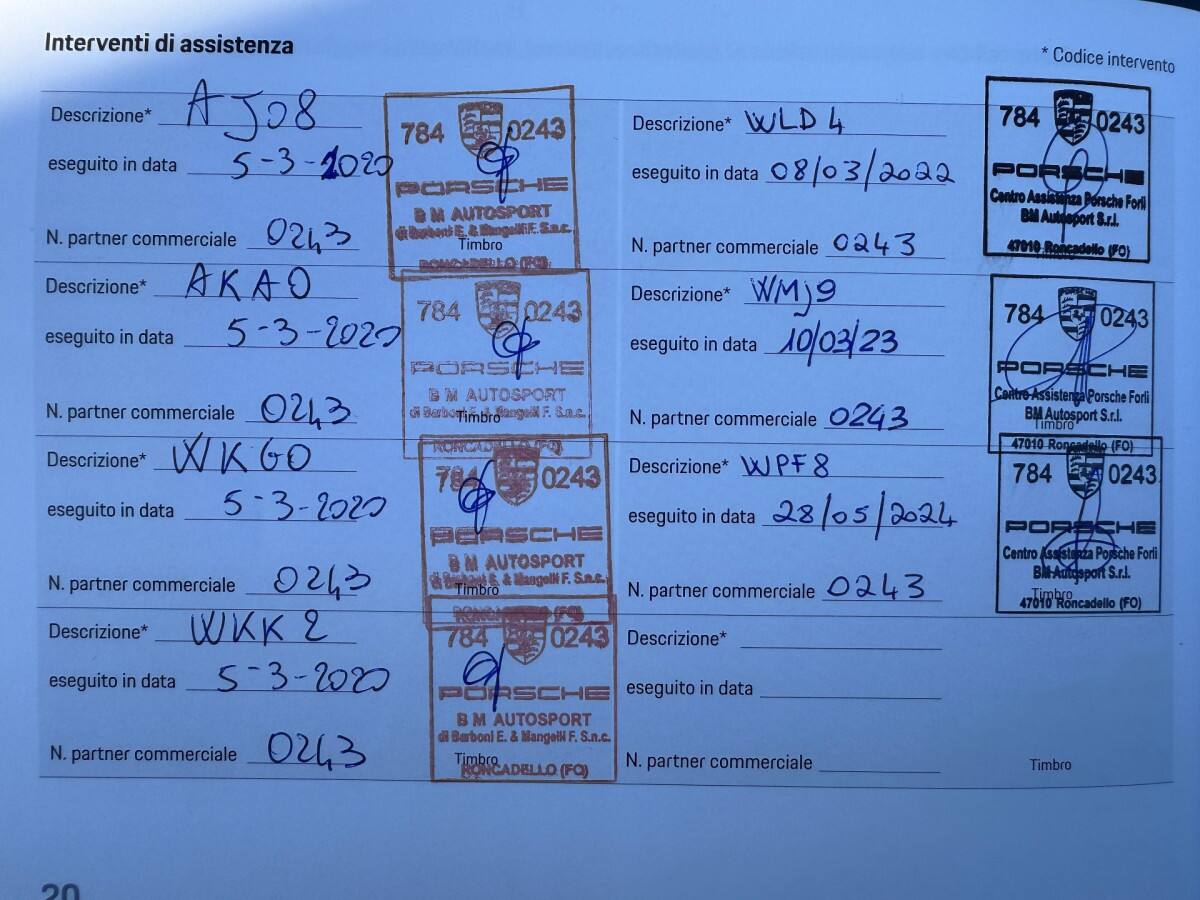 Interventi di assistenza
* Codice intervento
Descrizione* AJ08
eseguito in data 5-3-2020
N. partner commerciale 0243
784 0243
PORSCHE
B M AUTOSPORT
di Barboni E. & Mangelli F. S.n.c.
Timbro
RONCADELLO (FO)
Descrizione* AKA0
eseguito in data 5-3-2020
N. partner commerciale 0243
784 0243
PORSCHE
B M AUTOSPORT
di Barboni E. & Mangelli F. S.n.c.
Timbro
RONCADELLO (FO)
Descrizione* WKG0
eseguito in data 5-3-2020
N. partner commerciale 0243
784 0243
PORSCHE
B M AUTOSPORT
di Barboni E. & Mangelli F. S.n.c.
Timbro
RONCADELLO (FO)
Descrizione* WKK2
eseguito in data 5-3-2020
N. partner commerciale 0243
784 0243
PORSCHE
B M AUTOSPORT
di Barboni E. & Mangelli F. S.n.c.
Timbro
RONCADELLO (FO)
Descrizione* WLD4
eseguito in data 08/03/2022
N. partner commerciale 0243
784 0243
PORSCHE
Centro Assistenza Porsche Forlì
BM Autosport S.r.l.
47010 Roncadello (FO)
Descrizione* WMj9
eseguito in data 10/03/23
N. partner commerciale 0243
784 0243
PORSCHE
Centro Assistenza Porsche Forlì
BM Autosport S.r.l.
Timbro
47010 Roncadello (FO)
Descrizione* WPF8
eseguito in data 28/05/2024
N. partner commerciale 0243
784 0243
PORSCHE
Centro Assistenza Porsche Forlì
BM Autosport S.r.l.
Timbro
47010 Roncadello (FO)
Descrizione*
eseguito in data
N. partner commerciale
Timbro
20